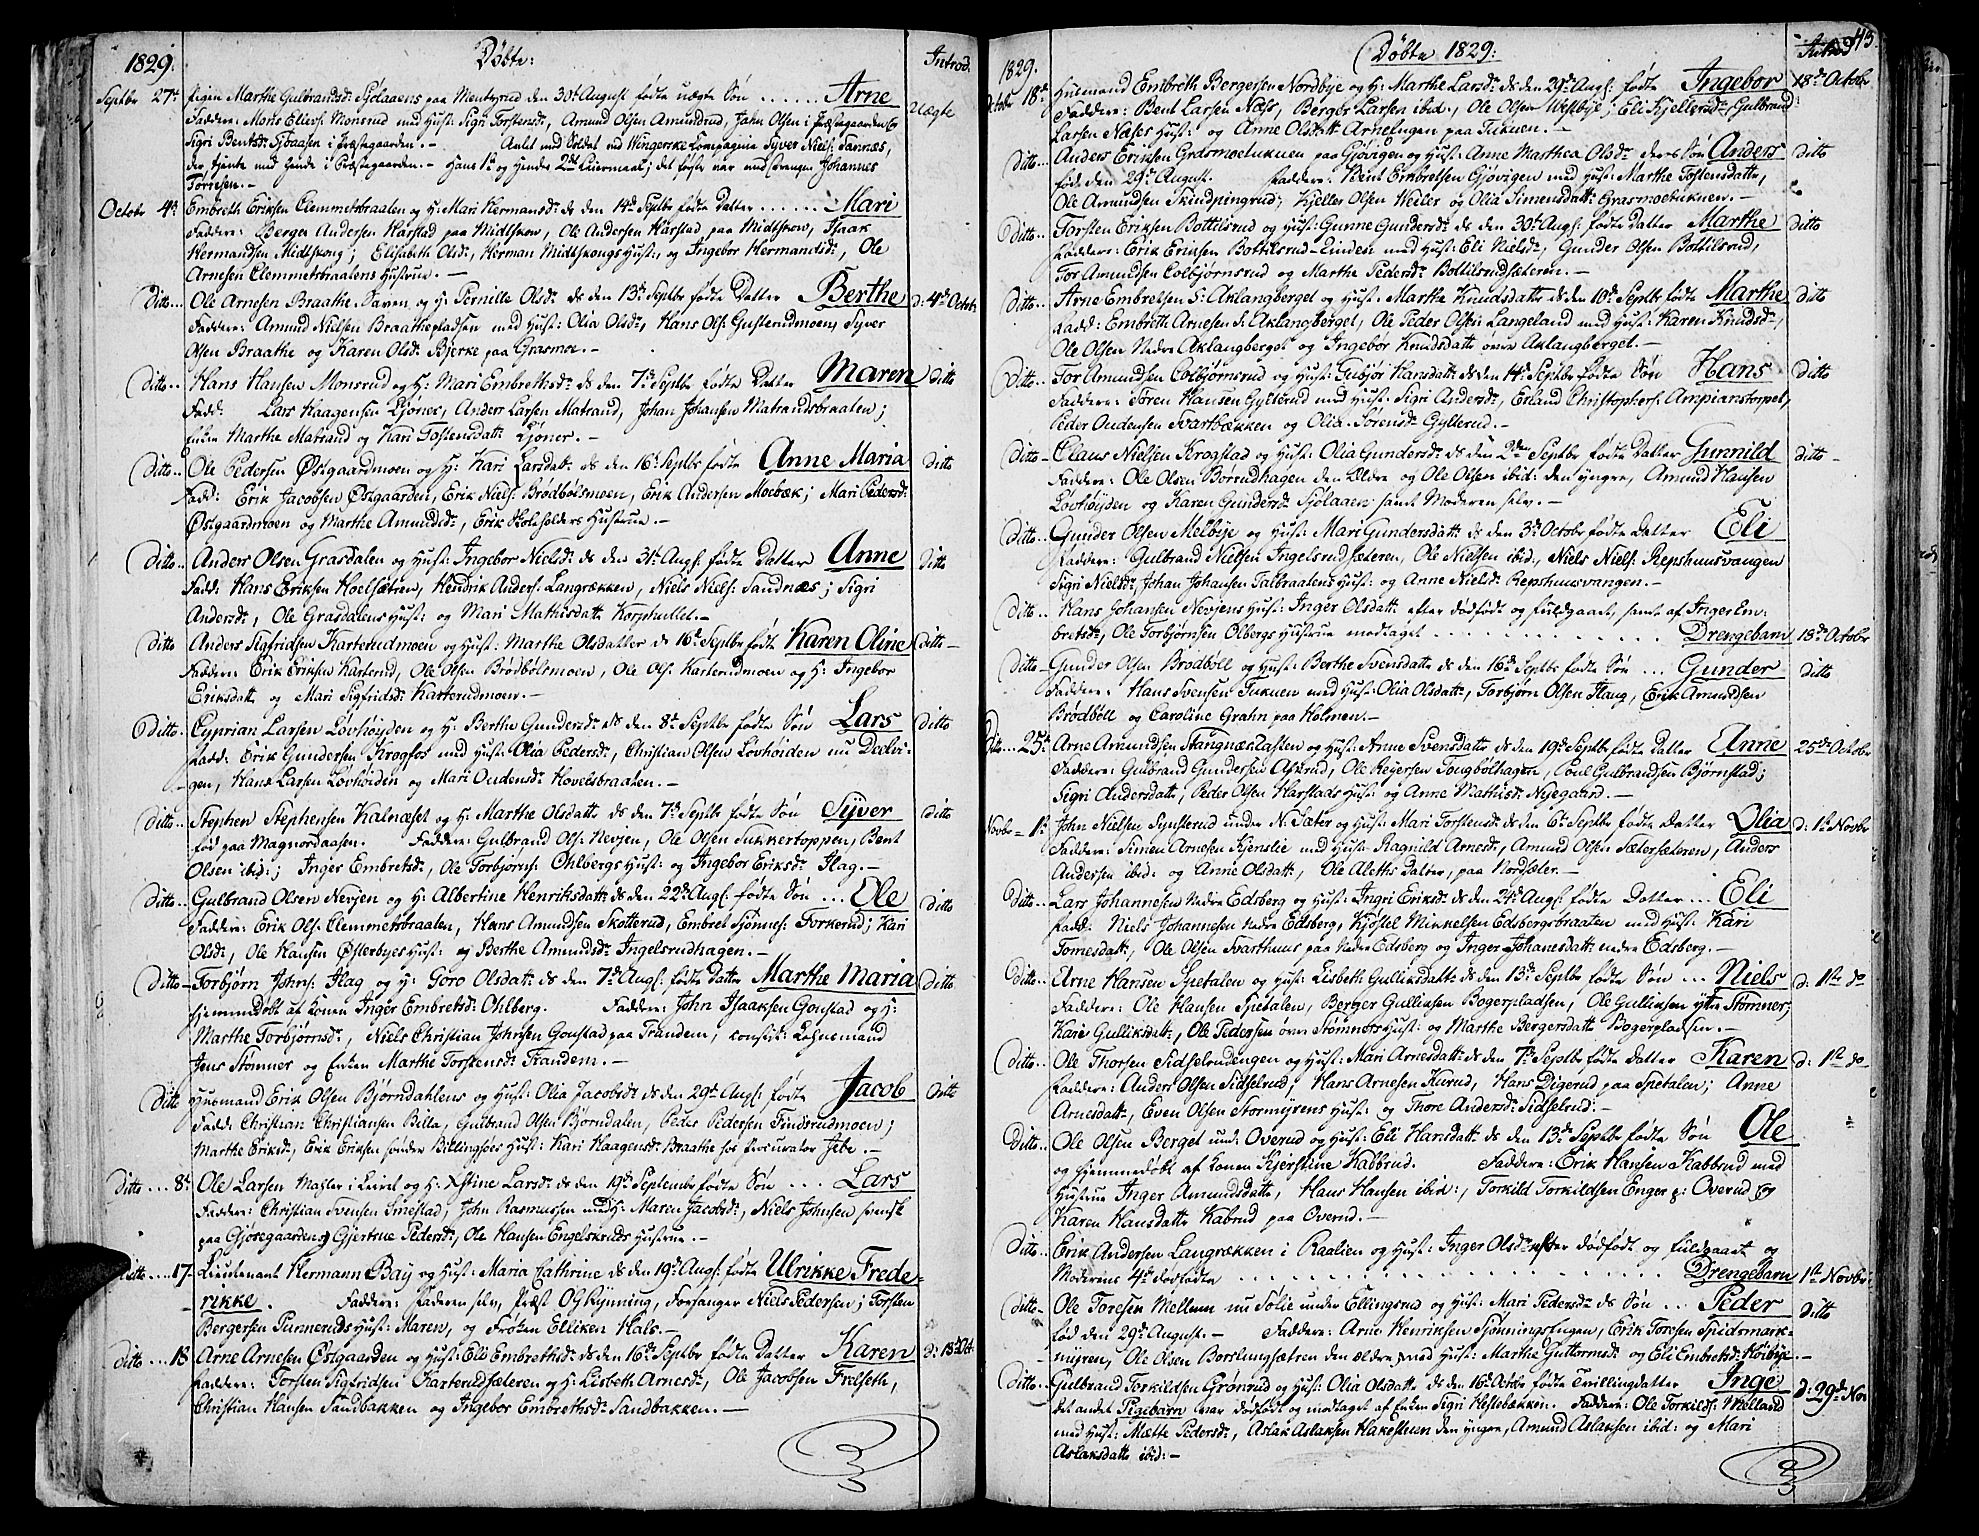 1829. Døbte: Introd.
Septbr 27de Pigen Marthe Gulbrandsd: Sjølaaens paa Mentzrud den 30te August fødte uægte Søn ...... Arne Uægte
Faddere: Mons Ellevs: Monsrud med Hust: Sigri Torstensd:, Amund Olsen Amundrud, John Olsen i Præstegaarden og
Sigri Bentsd: Sjøaasen i Præstegaarden. — Anlat med Soldat ved Wingerske Compagnie Syver Niels: Sannæs,
der tjente med hende i Præstegaarden. — Hans 1te og hendes 2det Leiermaal; det første var med Svangn Johannes
Tørresen. —
Octobr 4de Embreth Eriksen Clemmetsbraaten og H: Mari Hermansd: ds den 14de Septbr fødte Datter ...... Mari
Faddere: Berger Andersen Harstad paa Midtskow, Ole Andersen Harstad paa Midtskow, Isaak
Hermandsen Midtskong; Elisabeth Olsd:, Herman Midtskongs Hust:, og Ingebor Hermandsd:, Ole
Arnesen Clemmetsbraatens Hustrue. —
Ditto... Ole Arnesen Braathe Raven og H: Pernille Olsd: ds den 13de Septbr fødte Datter Berthe d: 4de Octobr
Faddere: Amund Nielsen Braathepladsen med Hust: Olia Olsd:, Hans Ols: Gusterudmoen, Syver
Olsen Braathe og Karen Olsd: Bjerke paa Grasmoe. —
Ditto.. Hans Hansen Monsrud og H: Mari Embrethsd: ds den 7de Septbr fødte Datter Maren Ditto
Fadd: Lars Haagensen Ljøner, Anders Larsen Matrand, Johan Johansen Matrandsbraaten;
Enken Marthe Matrand og Kari Tostensdatt: Ljøner. —
Ditto.. Ole Pedersen Østgaardmoen og H: Kari Larsdatt: ds den 16de Septbr fødte Anne Maria Ditto
Fadd: Erik Jacobsen Østgaarden, Erik Niels: Brødbølsmoen, Erik Andersen Moebæk; Mari Pedersd:
Østgaardmoen og Marthe Amundsd:, Erik Skoleholders Hustrue. —
Ditto.. Anders Olsen Grasdalen og Hust: Ingebor Nielsd: ds den 31te Augs: fødte Datter Anne Ditto
Fadd: Hans Eriksen Hoelsætren, Hendrik Anders: Langrækken, Niels Niels: Sandnæs; Sigri
Andersd:, Ole Grasdalens Hust: og Mari Mathisdatt: Korphullet. —
Ditto Anders Sigfridsen Karterudmoen og Hust: Marthe Olsdatter ds 16de Septbr fødte Karen Oline Ditto —
Faddere: Erik Eriksen Karterud, Ole Olsen Brødbølmoen, Ole Ols: Karterudmoen og H: Ingebor
Eriksdatt: og Mari Sigfridsd: Karterudmoen. —
Ditto- Cyprian Larsen Løvhøyden og H: Berthe Gundersd: ds den 8de Septbr fødte Søn Lars Ditto
Fadd: Erik Gundersen Krogfos med Hust: Olia Pedersd:, Christian Olsen Lovhøiden nu Dalvi-
gen, Hans Larsen Løvhøiden og Mari Oudensd: Hovelsbraaten. —
Ditto.. Stephen Stephensen Kalnæset og H: Marthe Olsdatt: ds den 7de Septbr fødte Søn Syver Ditto
fød paa Magnordaasen. Faddere: Gulbrand Ols: Nevjen, Ole Olsen Sukkertoppen, Bent
Olsen ibid:; Inger Embretsd:, Ole Torbjørns: Ohlbergs Hust: og Ingebor Eriksd: Flag. —
Ditto.. Gulbrand Olsen Nevjen og H: Albertine Henriksdatt: ds den 22de Augs: fødte Søn ... Ole Ditto
Faddere: Erik Ols: Clemmetsbraaten, Hans Amundsen Skotterud, Embret Sjønnes: Torkerud; Kari
Olsd:, Ole Hansen Østerbyes Hust: og Berthe Amundsd: Ingelsrudhagen. —
Ditto- Torbjørn Johns: Flag og H: Goro Olsdatt: ds den 7de Augs: fødte Datter Marthe Maria Ditto
hjemmedøbt af Konen Inger Embretsd: Ohlberg. Faddere: John Isaaksen Gonstad og H:
Marthe Torbjørnsd:, Niels Christian Johnsen Gonstad paa Trandem, Lehnsmand
Jens Stømner og Enken Marthe Torstensd: Trandem. —
Ditto Huusmand Erik Olsen Bjørndahlens og Hust: Olia Jacobsd: ds den 29de Augs: fødte Jacob Ditto
Fadd: Christian Christiansen Beila, Gulbrand Olsen Bjørndalen, Peder Pedersen Findsrudmoen;
Marthe Eriksd:, Erik Eriksen søndre Billingsøes Hust: Kari Haagensd: Braathe hos Procurator Jebe. —
Ditto ... 8de Ole Larsen Mahler i Leiret og H: Xstine Larsd: ds den 19de Septembr fødte Søn ... Lars
Faddere: Christian Svensen Smestad, John Rasmussen med H: Maren Jacobsd:, Niels Johnsen
paa Gjøsegaarden, Gjertrue Pedersd:, Ole Hansen Engelskruds Hustrue. —
Ditto .... 17- Lieutenant Hermann Bay og Hust: Maria Cathrine ds den 19de Augs: fødte Ulrikke Frede-
rikke. Faddere: Faderen selv, Præst O: Rynning, Forsanger Niels Pedersen; Torsten
Bergersen Tunneruds Hust: Maren, og Frøken Elliken Hals. —
Ditto .... 18 Arne Arnesen Østgaarden og Hust: Eli Embrethsd: ds den 16de Septbr fødte Datter Karen d: 18de Oct.
Faddere: Torsten Sigfridsen Karterudsæteren og H: Lisbeth Arnesd:, Ole Jacobsen Frelseth,
Christian Hansen Sandbakken og Ingebor Embrethsd: Sandbakken. —
1829. Døbte 1829: Introd 43.
Octobr 18de Huusmand Embreth Bergersen Nordbye og H: Marthe Larsd: ds den 29de Augs: fødte Ingebor 18de Octobr
Faddere: Bent Larsen Næss, Berger Larsen ibid:, Ole Olsen Westbye; Eli Kjellersd:, Gulbrand
Larsen Næses Hust: og Anne Olsdatt: Arnefengen paa Tuknen. —
Ditto... Anders Eriksen Grasmoetuknen paa Gjøvigen og Hust: Anne Marthea Olsd: deres Søn Anders Ditto
fød den 29de August. Faddere: Bent Embretsen Gjøvigen med Hust: Marthe Tostensdatte,
Ole Amundsen Skindpingrud, Kjeller Olsen Weiler og Olia Simensdatt: Grasmoetuknen. —
Ditto.. Torsten Eriksen Bottilsrud og Hust: Gunne Gundersd: ds den 30te Augs: fødte Datter Marthe Ditto
Faddere: Erik Eriksen Bottilsrud-Linden med Hust: Eli Nielsd:, Gunder Olsen Bottilsrud,
Tor Amundsen Colbjørnsrud og Marthe Pedersd: Bottilsrudsæteren. —
Ditto.. Arne Embretsen S: Aklangberget og Hust: Marthe Knudsdatt: ds den 10de Septbr fødte Marthe Ditto
Fadd: Embreth Arnesen S: Aklangberget, Ole Peder Olsen Langeland med Hust: Karen Knudsd:,
Ole Olsen Nedre Aklangberget og Ingebor Knudsdatt: øvre Aklangberget. —
Ditto.. Tor Amundsen Colbjørnsrud og Hust: Gubjør Hansdatt: ds den 14de Septbr fødte Søn Hans Ditto
Faddere: Søren Hansen Gylterud med Hust: Sigri Andersd:, Erland Christophers: Ampianstorpet,
Peder Oudensen Svartbækken og Olia Sørensd: Gylterud. —
Ditto- Claus Nielsen Krogstad og Hust: Olia Gundersd: ds den 2den Septbr fødte Datter Gunnild ditto -
Faddere: Ole Olsen Børrudhagen den Ældre og Ole Olsen ibid: den yngre, Amund Hansen
Løvhøyden og Karen Gundersd: Sjølaaen samt Moderen selv. —
Ditto.. Gunder Olsen Meløye og Hust: Mari Gundersdatt: ds den 3de Octobr fødte Datter Eli
Faddere: Gulbrand Nielsen Ingelsrudsæteren, Ole Nielsen ibid:, Niels Niels: Repshuusvangen
Sigri Nielsd:, Johan Johansen Talbraatens Hust: og Anne Nielsd: Repshuusvangen. —
Ditto.. Hans Johansen Nevjens Hust: Inger Olsdatt: efter dødfødt og fuldgaaet, samt af Inger Em-
bretsd:, Ole Torbjørnsen Olbergs Hustrue modtaget ........ Drengebarn 18de Octobr
Ditto- Gunder Olsen Brodbøll og Hust: Berthe Svensdatte ds den 16de Septbr fødte Søn ... Gunder Ditto
Faddere: Hans Svensen Tuknen med Hust: Olia Olsdatt:, Torbjørn Olsen Flaug, Erik Amundsen
Brødbøll og Caroline Grahn paa Holmen. —
Ditto.. 25de Arne Amundsen Stangnæstasten og Hust: Anne Svensdatte ds den 19de Septbr fødte Datter Anne 25de Octobr
Faddere: Gulbrand Gundersen Aserud, Ole Reyersen Tougbølhagen, Poul Gulbrandsen Bjørnstad;
Sigri Andersdatt:, Peder Olsen Harstads Hust: og Anne Mathisd: Nyegaard. —
Novbr - 1te John Nielsen Synsterud under N: Sæter og Hust: Mari Torstensd: ds den 6te Septbr fødte Datter Olia d: 1te Novbr
Faddere: Simen Arnesen Kjenslie med Hust: Ragnild Arnesd:, Amund Olsen Sætersæteren, Anders
Andersen ibid: og Anne Olsdatt:, Ole Aleths Datter, paa Nordsæter. —
Ditto.. Lars Johannesen Nedre Edsberg og Hust: Ingri Eriksd: ds den 24de Augs: fødte Datter ... Eli
Fadd: Niels Johannesen Nedre Edsberg, Kjøstel Mikkelsen Edsbergsbraaten med Hust: Kari
Tomesdatt:, Ole Olsen Svarthuus paa Nedre Edsberg og Inger Johanesdatt: nedre Edsberg. —
Ditto.. Arne Hansen Spetalen og Hust: Lisbeth Gulliksdatt: ds den 13de Septbr fødte Søn ... Niels d. 1te do
Faddere: Ole Hansen Spetalen, Berger Gulliksen Bogerpladsen, Ole Gulliksen ytre Stømner;
Karie Gulliksdatt:, Ole Pedersen øvre Stømners Hust: og Marthe Bergersdatt: Bogerpladsen. —
Ditto.. Ole Thorsen Sidselrudengen og Hust: Mari Arnesdatt: ds den 7de Septbr fødte Datter Karen d: 1te do
Faddere: Anders Olsen Sidselrud, Hans Arnesen Kurud, Hans Digerud paa Spetalen; Anne
Arnesdatt:, Even Olsen Stormyrens Hust: og Thore Andersd: Sidselrud. —
Ditto.. Ole Olsen Berget und: Overud og Hust: Eli Hansdatt: ds den 13de Septbr fødte Søn Ole
og hjemmedøbt af Konen Kjerstine Kabbrud. Faddere: Erik Hansen Kabbrud med
Hustrue Inger Amundsdatte, Hans Hansen ibid:, Torkild Torkildsen Enger p: Overud og
Karen Hansdatt: Kabrud paa Overud. —
Ditto.. Erik Andersen Langrækken i Raalien og Hust: Inger Olsd: efter dødfødt og fuldgaaet og
Moderens 4de dødfødte ........ Drengebarn 1te Novbr
Ditto- Ole Toresen Mellum nu Solie under Ellingsrud og Hust: Mari Pedersd: ds Søn ... Peder Ditto
fød den 29de August. — Faddere: Arne Henriksen Sjønningsengen, Erik Toresen Spidsmark-
myren, Ole Olsen Borslungsætren den ældre med Hust: Marthe Guttormsd: og Eli Embretsd: Høibye. —
Ditto.. Gulbrand Torkildsen Grønrud og Hust: Olia Olsdatte ds den 16de Octbr fødte Tvillingdatter Inge d: 29de Nov
det andet Pigebarn var dødfødt og modtaget af Enken Sigri Hestebækken. Faddere: Ole Torkilds: Melland
med Hust: Mætte Pedersd:, Aslak Aslaksen Hakestuen den yngre, Amund Aslaksen ibid: og Mari
Aslaksdatte ibid: —